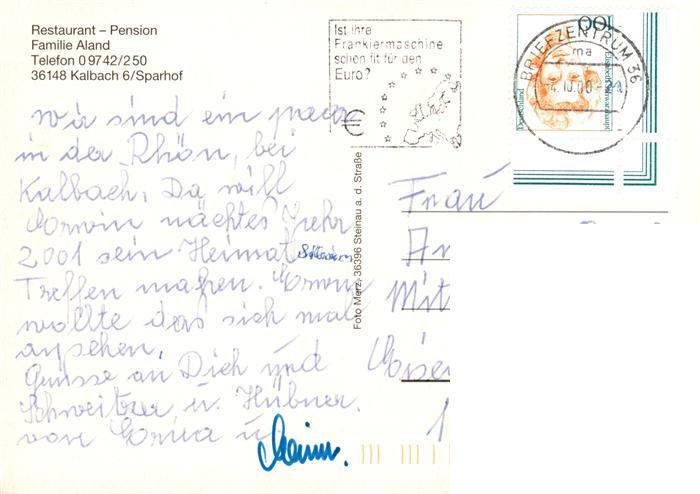 Restaurant – Pension
Familie Aland
Telefon 0 97 42/2 50
36148 Kalbach 6/Sparhof
Ist Ihre
Frankiermaschine
schon fit für den
Euro?
€
BRIEFZENTRUM 36
ma
4.10.00
Deutschland
wir sind ein paar
in der Rhön, bei
Kalbach. Da will
Erwin nächtes Jahr
2001 sein Heimat
Treffen mahen. Erwin
wollte das sich mal
ansehen.
Grüsse an Dich und
Schweitzer u. Hübner.
von Erna u.
Foto Merz, 36396 Steinau a. d. Straße
Frau
An
Mit
Eise
1